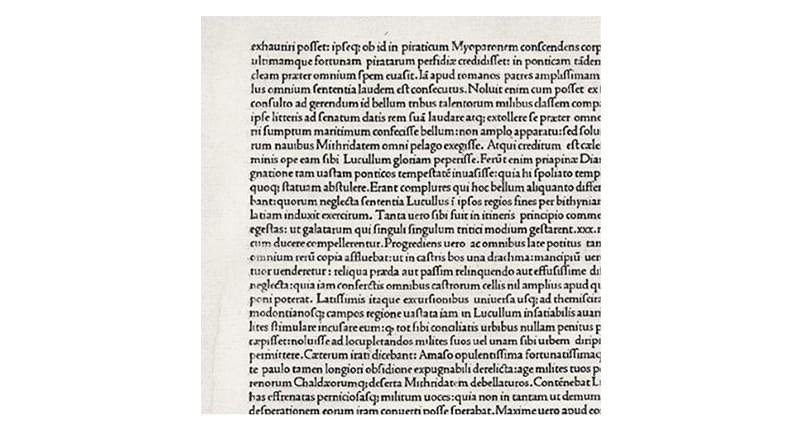 exhauriri posset: ipseq; ob id in piraticum Myoparonem conscendens corp
ultimamque fortunam piratarum perfidiæ credidisset: in ponticam tãdem
cleam præter omnium spem euasit. Iã apud romanos patres amplissimam
lus omnium sententia laudem est consecutus. Noluit enim cum posset ex
consulto ad gerendum id bellum tribus talentorum milibus classem compa
ipse litteris ad senatum datis rem suã laudare atq; extollere se præter omne
ni sumptum maritimum confecisse bellum: non amplo apparatu: sed solu
rum nauibus Mithridatem omni pelago exegisse. Atqui creditum est cæle
minis ope eam sibi Lucullum gloriam peperisse. Ferũt enim priapinæ Dian
gnatione tam uastam ponticos tempestatẽ inuasisse: quia hi spoliato temp
quoq; statuam abstulere. Erant complures qui hoc bellum aliquanto differ
bant: quorum neglecta sententia Lucullus ĩ ipsos regios fines per bithynian
latiam induxit exercitum. Tanta uero sibi fuit in itineris principio comme
egestas: ut galatarum qui singuli singulum tritici modium gestarent. xxx. m
cum ducere compellerentur. Progrediens uero ac omnibus late potitus tan
omnium rerũ copia affluebat: ut in castris bos una drachma: mancipiũ uero
tuor uenderetur: reliqua præda aut passim relinquendo aut effusissime di
neglecta: quia iam confertis omnibus castrorum cellis nil amplius apud qu
poni poterat. Latissimis itaque excursionibus uniuersa usq; ad themiscira
modontianosq; campos regione uastata iam in Lucullum insatiabilis auari
lites stimulare incusare eum: ꝙ tot sibi conciliatis urbibus nullam penitus p
cæpisset: noluisse ad locupletandos milites suos uel unam sibi urbem diripi
permittere. Cæterum irati dicebant: Amaso opulentissima fortunatissimaq
te paulo tamen longiori obsidione expugnabili derelicta: age milites tuos p
renorum Chaldæorumq; deserta Mithridatem debellaturos. Contẽnebat L
has effrenatas perniciosasq; militum uoces: quia non in tantam ut demum
desperationem eorum iram conuerti posse sperabat. Maxime uero apud eo